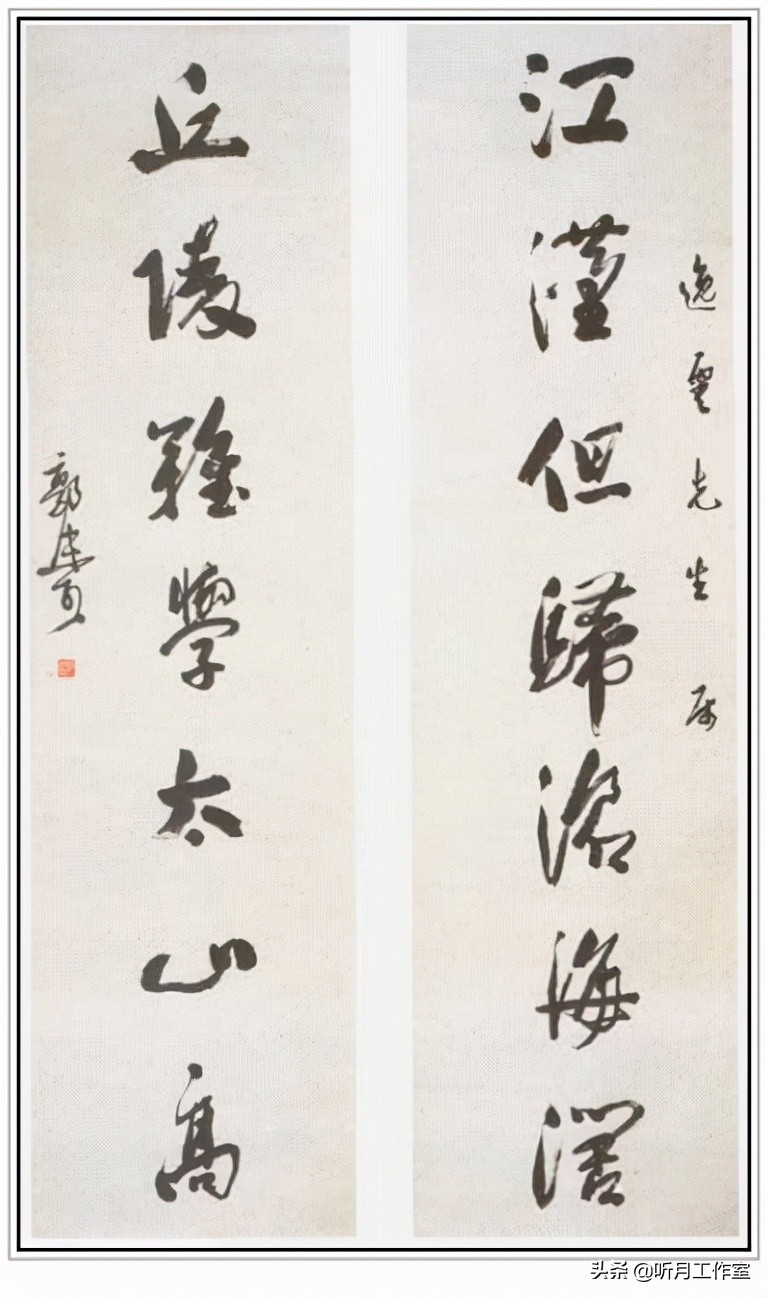 逸先生属
江漢但歸滄海闊
丘陵難學太山高
郭
头条 @听月工作室